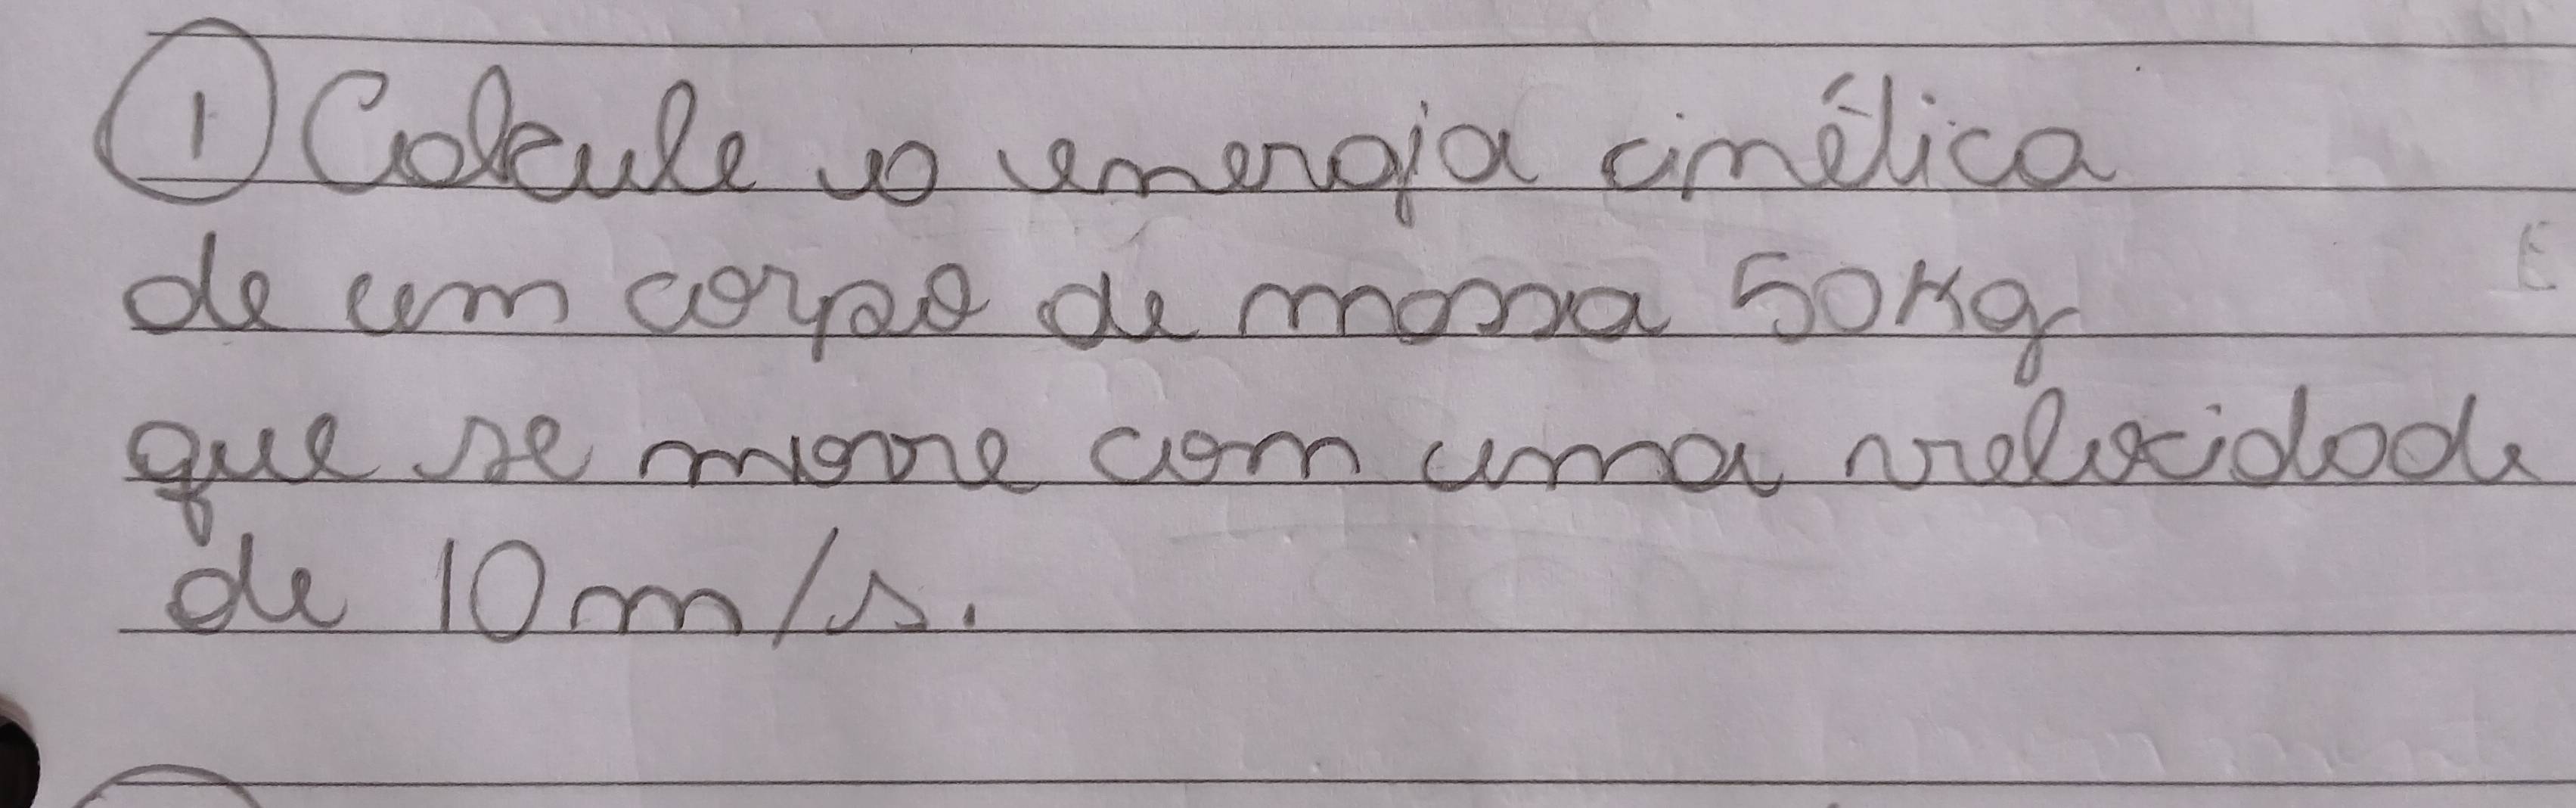 ① Calcule a energia cinética
de um corpo de massa 50Kg
que se move com uma velocidade
de 10m/s.